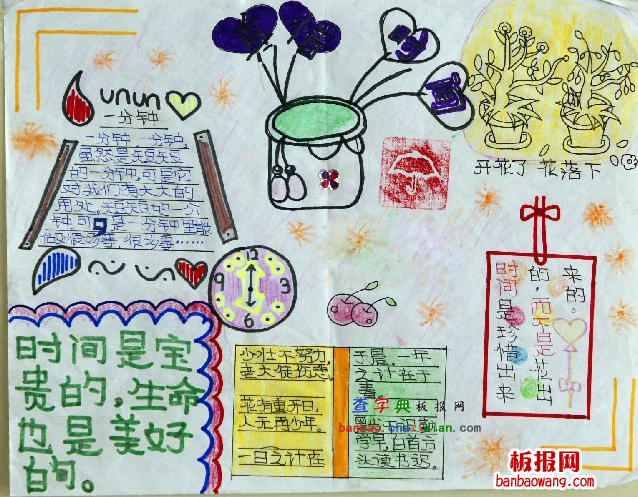 unun
一分钟
一分钟,一分钟,
虽然是短短
的一分钟,可是它
对我们有大大的
用处,短短的一分
钟可是一分钟里能
做很多事很多事……
开花了 花落下
12
3
6
9
时间是宝
贵的,生命
也是美好
的。
少壮不努力,
老大徒伤悲。
花有重开日,
人无再少年。
一日之计在
于晨,一年
之计在于
春
黑发不知勤
学早,白首方
悔读书迟。
时间是珍惜出来
的,而不是花出
来的。
查字典 板报网
banbao.chazidian.com
板报网
banbaowang.com